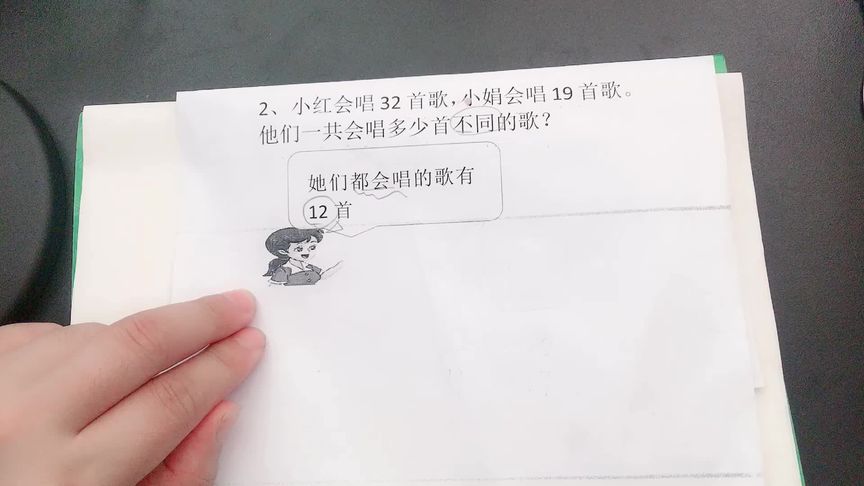 2、小红会唱 32 首歌，小娟会唱 19 首歌。
他们一共会唱多少首不同的歌？
她们都会唱的歌有
12 首